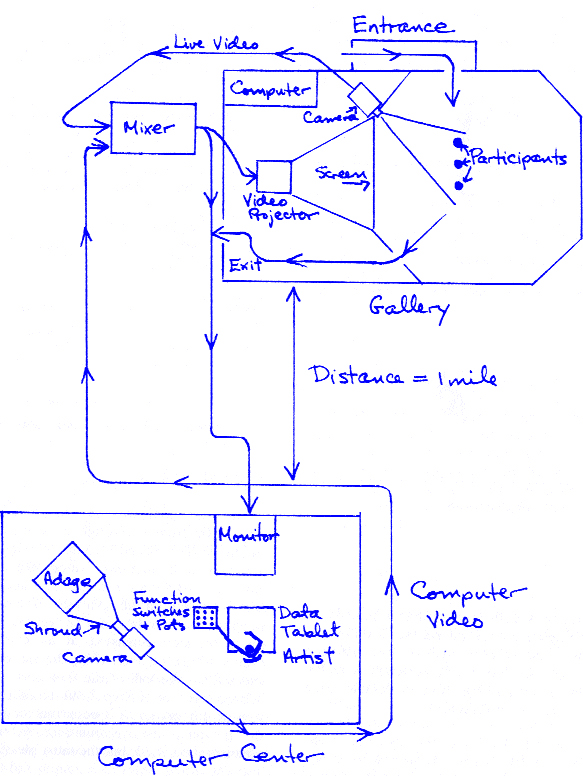 Entrance
Live Video
Computer
Camera
Mixer
Participants
Screen
Video
Projector
Exit
Gallery
Distance = 1 mile
Monitor
Adage
Function
Switches
+ Pots
Data
Tablet
Shroud
Artist
Camera
Computer
Video
Computer Center